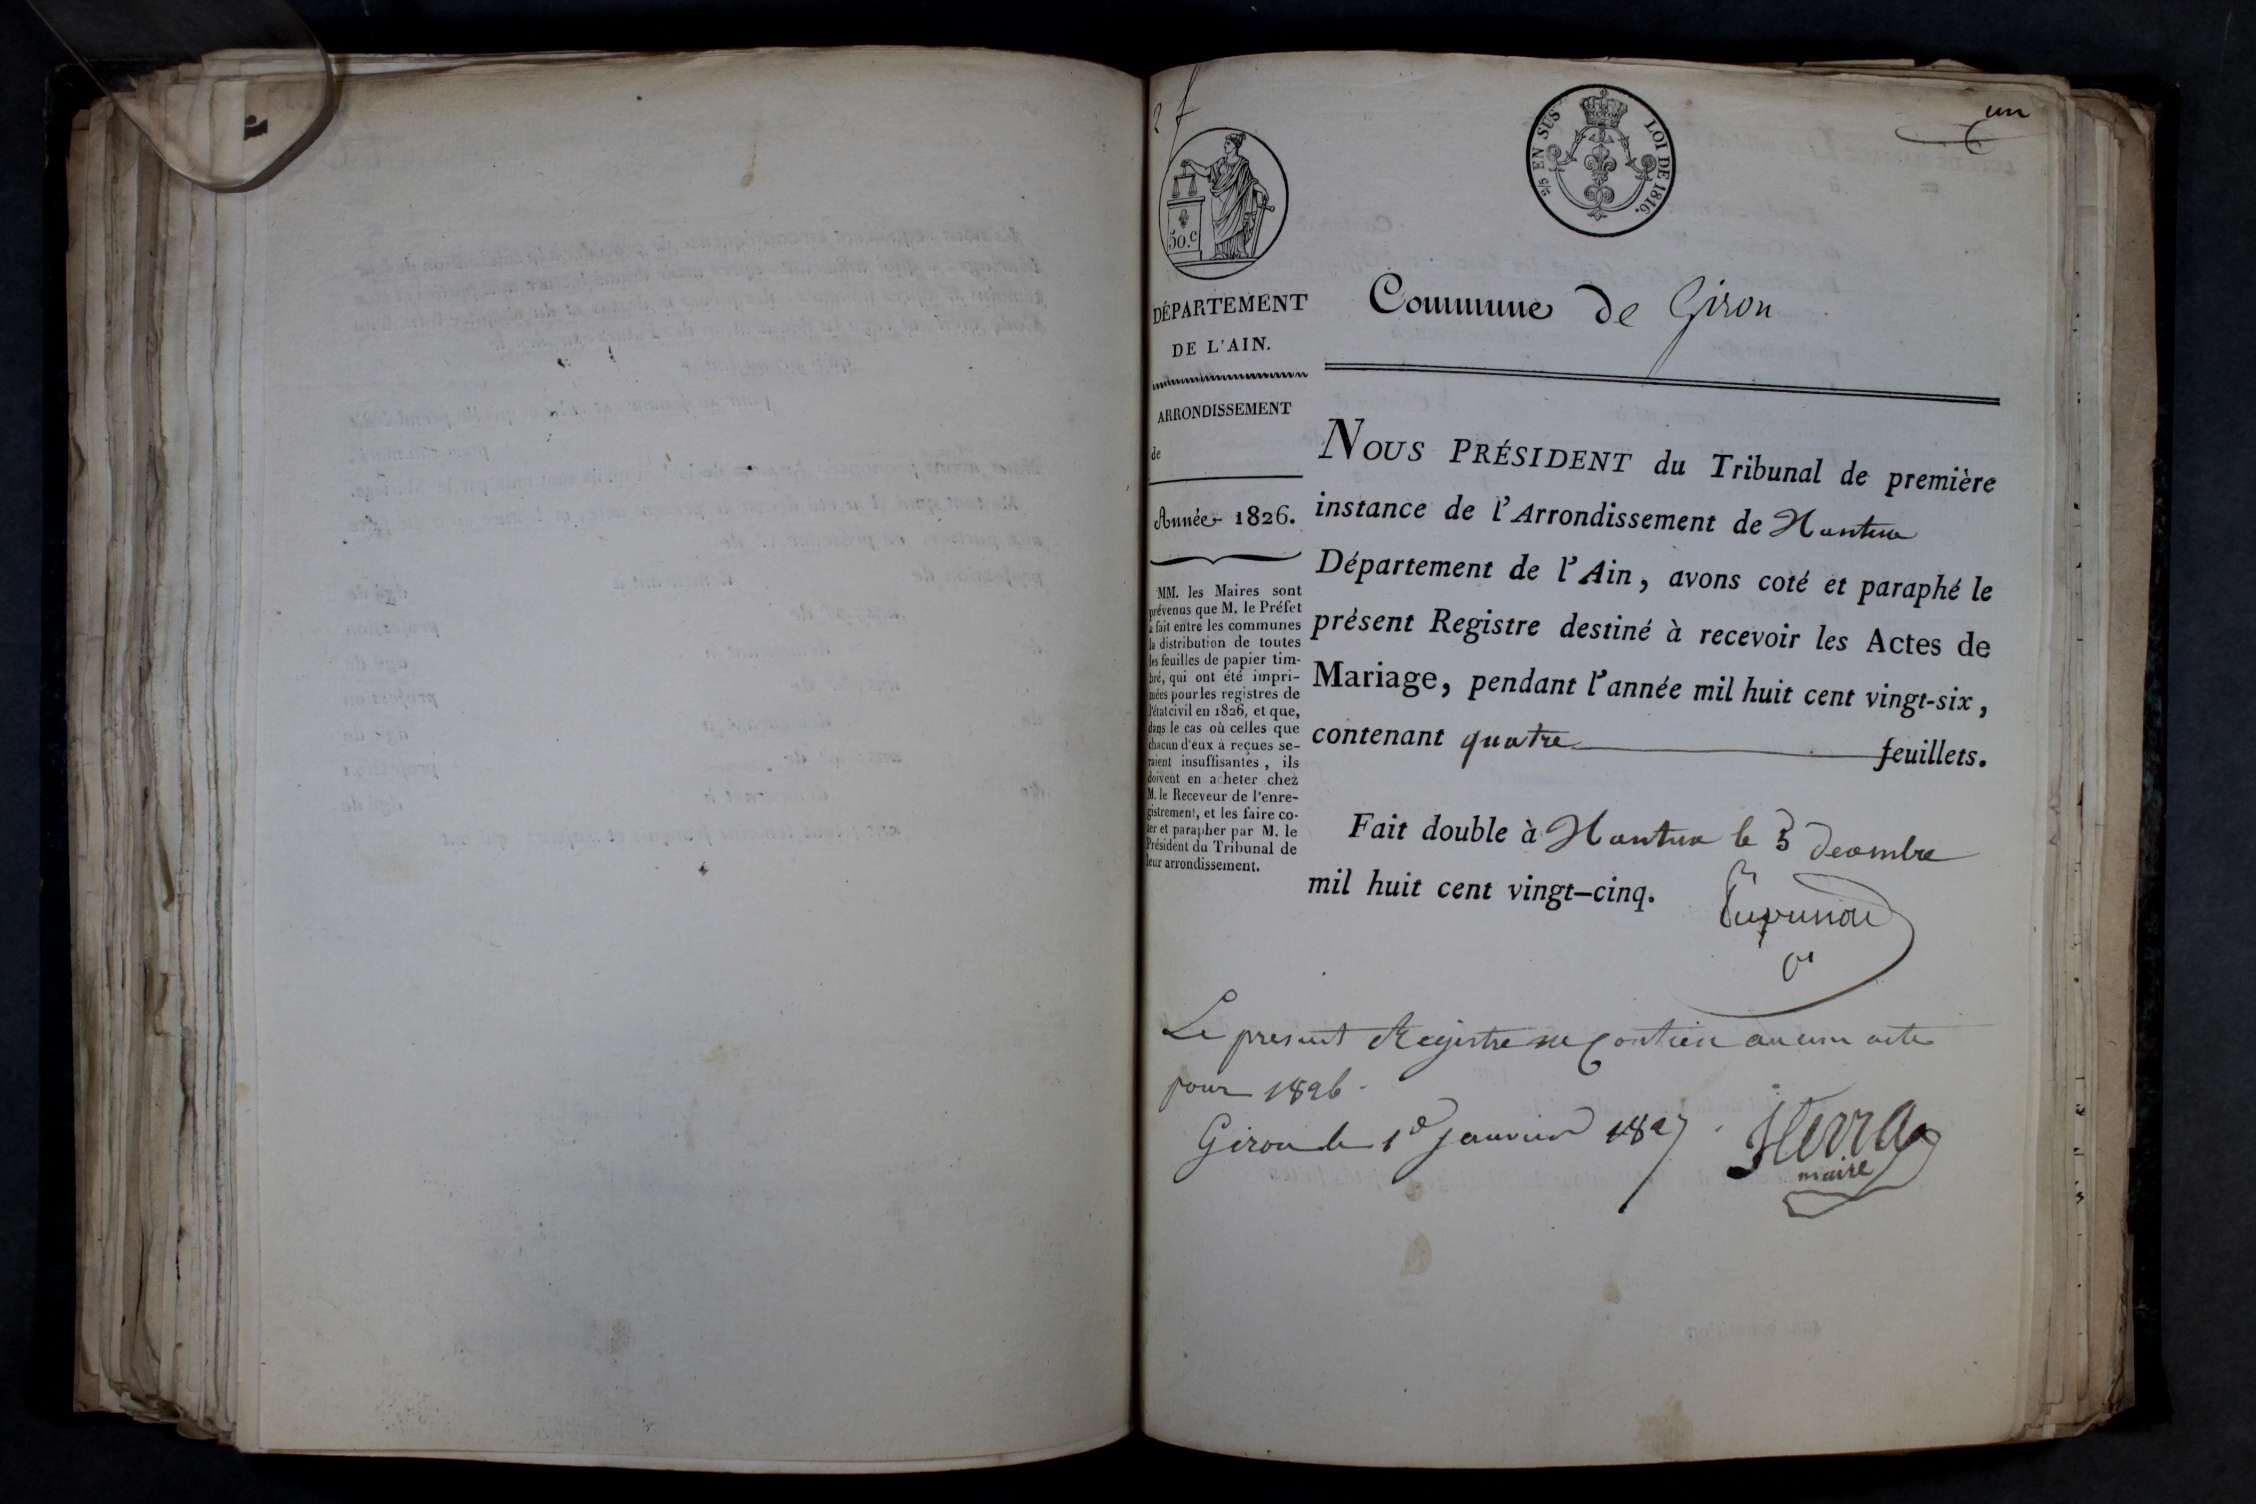 un
2/5 EN SUS LOI DE 1816.
50.c
DÉPARTEMENT
DE L'AIN.
ARRONDISSEMENT
de
Année 1826.
MM. les Maires sont
prévenus que M. le Préfet
a fait entre les communes
la distribution de toutes
les feuilles de papier tim-
bré, qui ont été impri-
mées pour les registres de
l'état civil en 1826, et que,
dans le cas où celles que
chacun d'eux a reçues se-
raient insuffisantes, ils
doivent en acheter chez
M. le Receveur de l'enre-
gistrement, et les faire co-
ter et parapher par M. le
Président du Tribunal de
leur arrondissement.
Commune de Giron
NOUS PRÉSIDENT du Tribunal de première
instance de l'Arrondissement de Nantua
Département de l'Ain, avons coté et paraphé le
présent Registre destiné à recevoir les Actes de
Mariage, pendant l'année mil huit cent vingt-six,
contenant quatre feuillets.
Fait double à Nantua le 5 decembre
mil huit cent vingt-cinq.
Le present Registre ne Contien aucun acte
pour 1826.
Giron le 1er janvier 1827.
maire